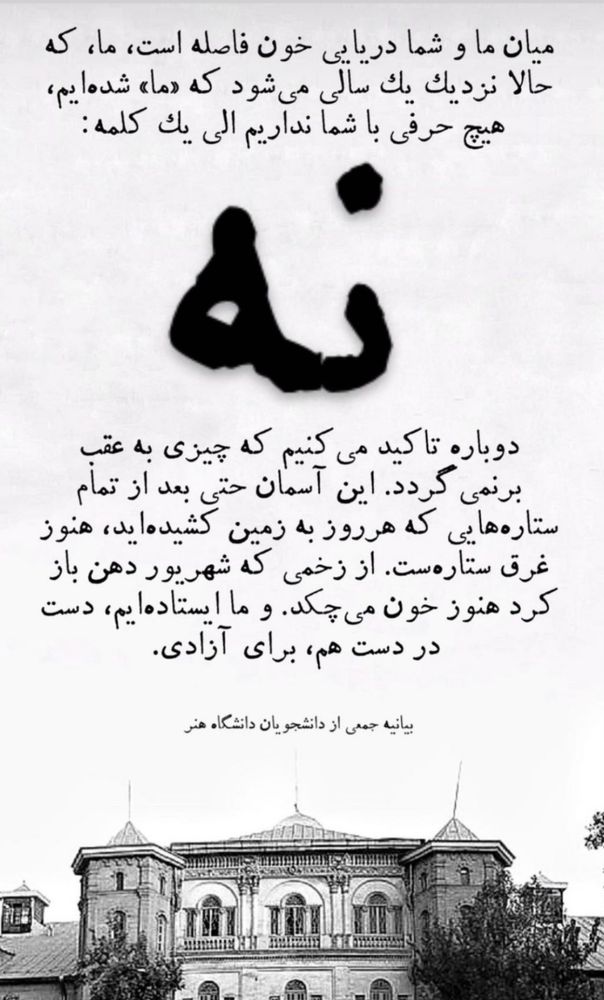 میان ما و شما دریایی خون فاصله است، ما، که
حالا نزدیك یك سالی می‌شود که «ما» شده‌ایم،
هیچ حرفی با شما نداریم الی یك کلمه:
نه
دوباره تاکید می کنیم که چیزی به عقب
برنمی گردد. این آسمان حتی بعد از تمام
ستاره‌هایی که هرروز به زمین کشیده‌اید، هنوز
غرق ستاره‌ست. از زخمی که شهریور دهن باز
کرد هنوز خون می‌چکد. و ما ایستاده‌ایم، دست
در دست هم، برای آزادی.
بیانیه جمعی از دانشجویان دانشگاه هنر